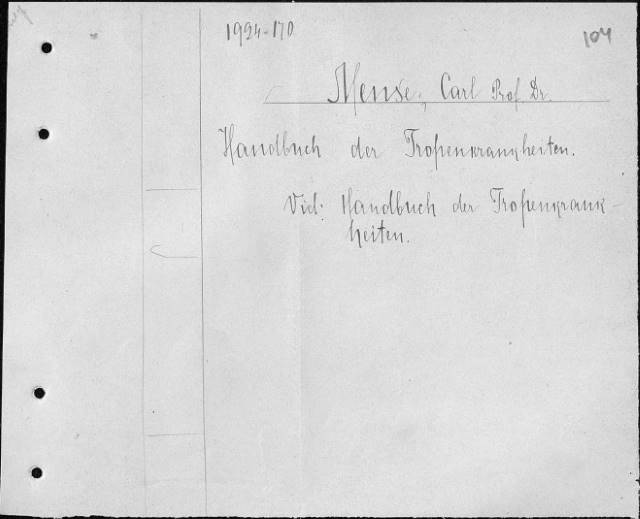 1924-170
104
Mense, Carl Prof. Dr.
Handbuch der Tropenkrankheiten.
Vid: Handbuch der Tropenkrank-
heiten.